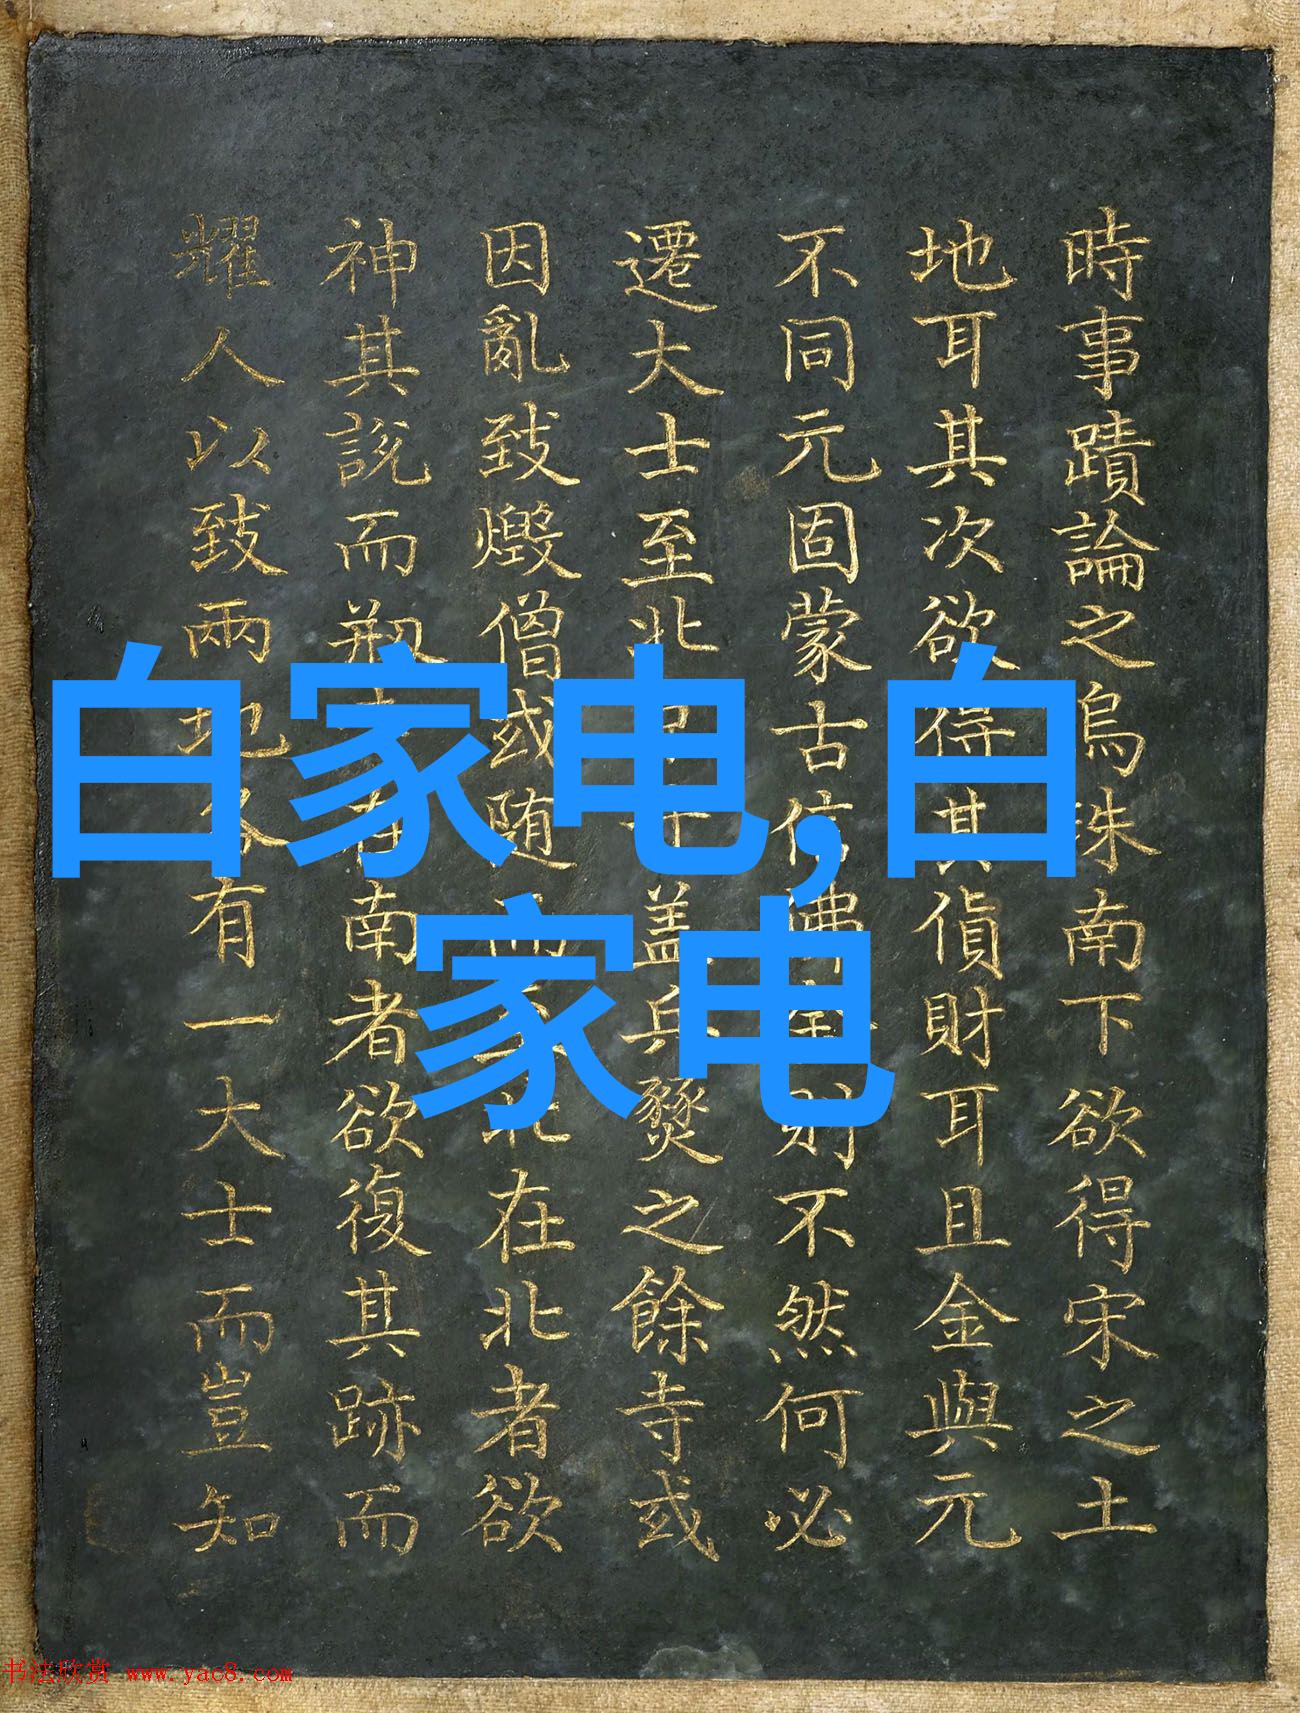 白家电,白
家电
時事蹟論之烏珠南下欲得宋之土
地耳其次欲得其貨財耳且金與元
不同元固蒙古信佛金則不然何必
遷大士至北蓋兵燹之餘寺或
因亂致燬僧或随而北在北者欲
神其說而刱在南者欲復其跡而
耀人以致兩地各有一大士而豈知
书法欣赏 www.yac8.com